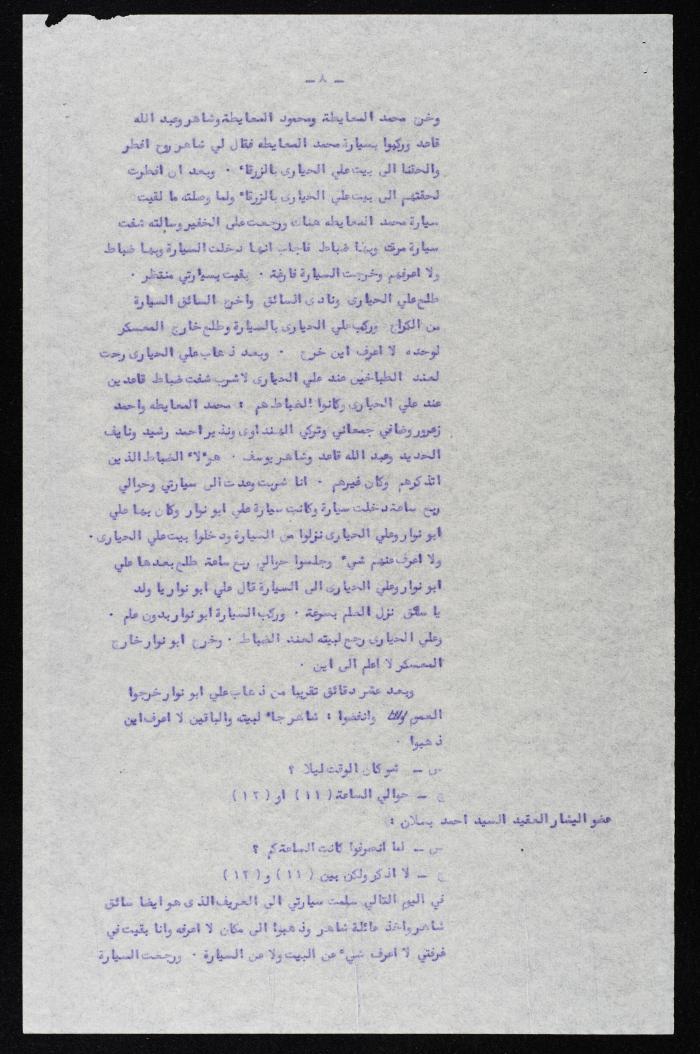 ـ ٨ ـ
وخرج محمد المعايطة ومحمود المعايطة وشاهر وعبد الله
قاعد وركبوا بسيارة محمد المعايطه فقال لي شاهر روح افطر
والحقنا الى بيت علي الحيارى بالزرقاء ٠ وبعد ان افطرت
لحقتهم الى بيت علي الحيارى بالزرقاء ولما وصلته ما لقيت
سيارة محمد المعايطه هناك ورجعت على الخفير وسالته شفت
سيارة مرت وبها ضباط فاجاب انها دخلت السيارة وبها ضباط
ولا اعرفهم وخرجت السيارة فارغة ٠ بقيت بسيارتي منتظر ٠
طلع علي الحيارى ونادى السائق واخرج السائق السيارة
من الكراج وركب علي الحيارى بالسيارة وطلع خارج المعسكر
لوحده لا اعرف اين خرج ٠ وبعد ذهاب علي الحيارى رحت
لعند الطباخين عند علي الحيارى لاشرب شفت ضباط قاعدين
عند علي الحيارى وكانوا الضباط هم : محمد المعايطه واحمد
زعرور وضافي جمعاني وتركي الهنداوى ونذير احمد رشيد ونايف
الحديد وعبد الله قاعد وشاهر يوسف ٠ هوءلاء الضباط الذين
اتذكرهم وكان غيرهم ٠ انا شربت وعدت الى سيارتي وحوالي
ربع ساعة دخلت سيارة وكانت سيارة علي ابو نوار وكان بها علي
ابو نوار وعلي الحيارى نزلوا من السيارة ودخلوا بيت علي الحيارى ٠
ولا اعرف عنهم شيء وجلسوا حوالي ربع ساعة طلع بعدها علي
ابو نوار وعلي الحيارى الى السيارة قال علي ابو نوار يا ولد
يا سائق نزل العلم بسرعة ٠ وركب السيارة ابو نوار بدون علم ٠
وعلي الحيارى رجع لبيته لعند الضباط ٠ وخرج ابو نوار خارج
المعسكر لا اعلم الى اين ٠
وبعد عشر دقائق تقريبا من ذهاب علي ابو نوار خرجوا
وانفضوا : شاهر جاء لبيته والباقين لا اعرف اين
ذهبوا ٠
س ـ شو كان الوقت ليلا ؟
ج ـ حوالي الساعة (١١) او (١٢)
عضو اليسار العقيد السيد احمد
س ـ لما انصرفوا كانت الساعة كم ؟
ج ـ لا اذكر ولكن بين (١١) و (١٢)
في اليوم التالي سلمت سيارتي الى العريف الذى هو ايضا سائق
شاهر واخذ عائلة شاهر وذهبوا الى مكان لا اعرفه وانا بقيت في
غرفتي لا اعرف شيء عن البيت ولا عن السيارة ٠ ورجعت السيارة